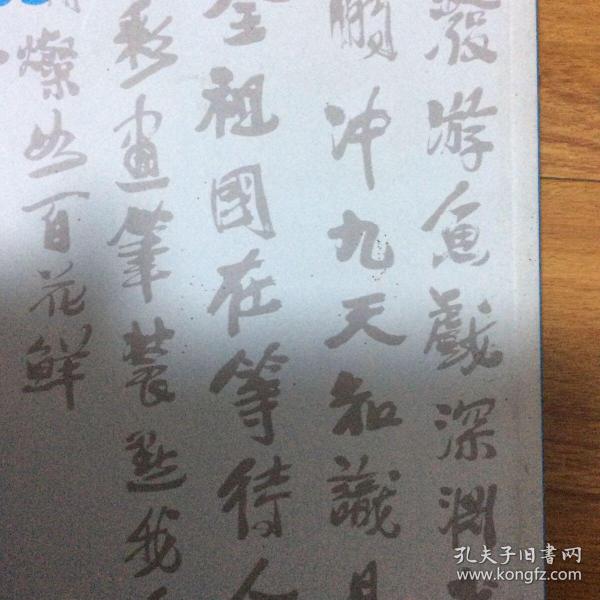 游魚戲深淵
冲九天知識
祖國在等待
彩畫筆裝點我
燦如百花鮮
孔夫子旧书网
www.kongfz.com